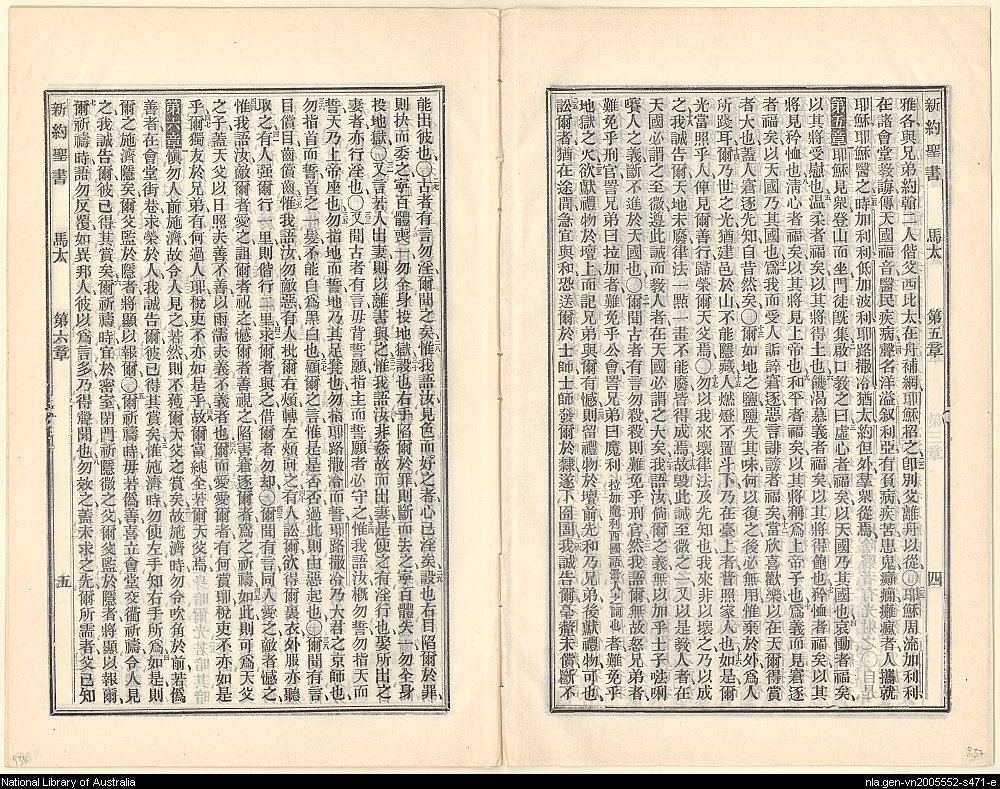 新約聖書 馬太 第五章 四
雅各與兄弟約翰二人偕父西比太在舟補網耶穌招之卽別父離舟以從○耶穌周流加利利
在諸會堂教誨傳天國福音醫民疾病聲名洋溢叙利亞有負病疾苦患鬼癲癎癱瘋者人攜就
耶穌耶穌醫之時加利利低加波利耶路撒冷猶太約但外羣衆從焉
第五章 耶穌見衆登山而坐門徒旣集啟口教之曰虛心者福矣以天國乃其國也哀慟者福矣
以其將受慰也溫柔者福矣以其將得土也饑渴慕義者福矣以其將得飽也矜恤者福矣以其
將見矜恤也淸心者福矣以其將見上帝也和平者福矣以其將稱爲上帝子也爲義而見窘逐
者福矣以天國乃其國也爲我而受人詬誶窘逐惡言誹謗者福矣當欣喜歡樂以在天爾得賞
者大也蓋人窘逐先知自昔然矣○爾如地之鹽鹽失其味何以復之後必無用惟棄於外爲人
所踐耳爾乃世之光猶建邑於山不能隱藏人燃燈不置斗下乃在臺上者普照家人也如是爾
光當照乎人俾見爾善行歸榮爾天父焉○勿以我來壞律法及先知也我來非以壞之乃以成
之我誠告爾天地未廢律法一點一畫不能廢皆得成焉故毀此誡至微之一又以是教人者在
天國必謂之至微遵此誡而教人者在天國必謂之大矣我語汝倘爾之義無以加乎士子
人之義斷不進於天國也○爾聞古者有言勿殺殺則難免乎刑官然我語爾無故怒兄弟者
難免乎刑官詈兄弟曰拉加拉加魔利西國語詈人之詞也者難免乎公會詈兄弟曰魔利者難免乎
地獄之火故獻禮物於壇上而記兄弟與爾有憾則留禮物於壇前先和乃兄弟後獻禮物可也
訟爾者猶在途間急宜與和恐送爾於士師士師發爾於隸遂下囹圄我誠告爾毫釐未償斷不
能出彼也○古者有言勿淫爾聞之矣惟我語汝見色而好之者心已淫矣設也右目陷爾於罪
則抉而委之寧百體喪一勿全身投地獄設也右手陷爾於罪則斷而去之寧百體失一勿全身
投地獄○又言若人出妻則以離書與之惟我語汝非姦故而出妻是使之有淫行也娶所出之
妻者亦行淫也○又聞古者有言毋背誓願指主而誓願者必守之惟我語汝槪勿誓勿指天而
誓天乃上帝座也勿指地而誓地乃其足凳也勿指耶路撒冷而誓耶路撒冷乃大君之京師也
勿指首而誓首之一髮不能自爲黑白也顧爾之言惟是是否否過此則由惡起也○爾聞有言
目償目齒償齒惟我語汝勿敵惡有人批爾右頰轉左頰向之有人訟爾欲得爾裏衣外服亦聽
取之有人强爾行一里則偕行二里求爾者與之借爾者勿却○爾聞有言同人愛之敵者憾之
惟我語汝敵爾者愛之詛爾者祝之憾爾者善視之陷害窘逐爾者爲之祈禱如此則可爲天父
之子蓋天父以日照夫善不善以雨濡夫義不義者也爾而愛愛爾者有何賞耶稅吏不亦如是
乎爾獨友於兄弟有何過人耶稅吏不亦如是乎故爾當純全若爾天父焉
第六章 愼勿人前施濟故令人見之若然則不獲爾天父之賞矣故施濟時勿令吹角於前若僞
善者在會堂街巷求榮於人我誠告爾彼已得其賞矣惟施濟時勿使左手知右手所爲如是則
爾之施濟隱矣爾父監於隱者將顯以報爾○爾祈禱時毋若僞善喜立會堂交衢祈禱令人見
之我誠告爾彼已得其賞矣爾祈禱時宜於密室閉門祈隱微之父爾父監於隱者將顯以報爾
爾祈禱時語勿反覆如異邦人彼以爲言多乃得聲聞也勿效之蓋未求之先爾所需者父已知
新約聖書 馬太 第六章 五
938
937
National Library of Australia
nla.gen-vn2005552-s471-e